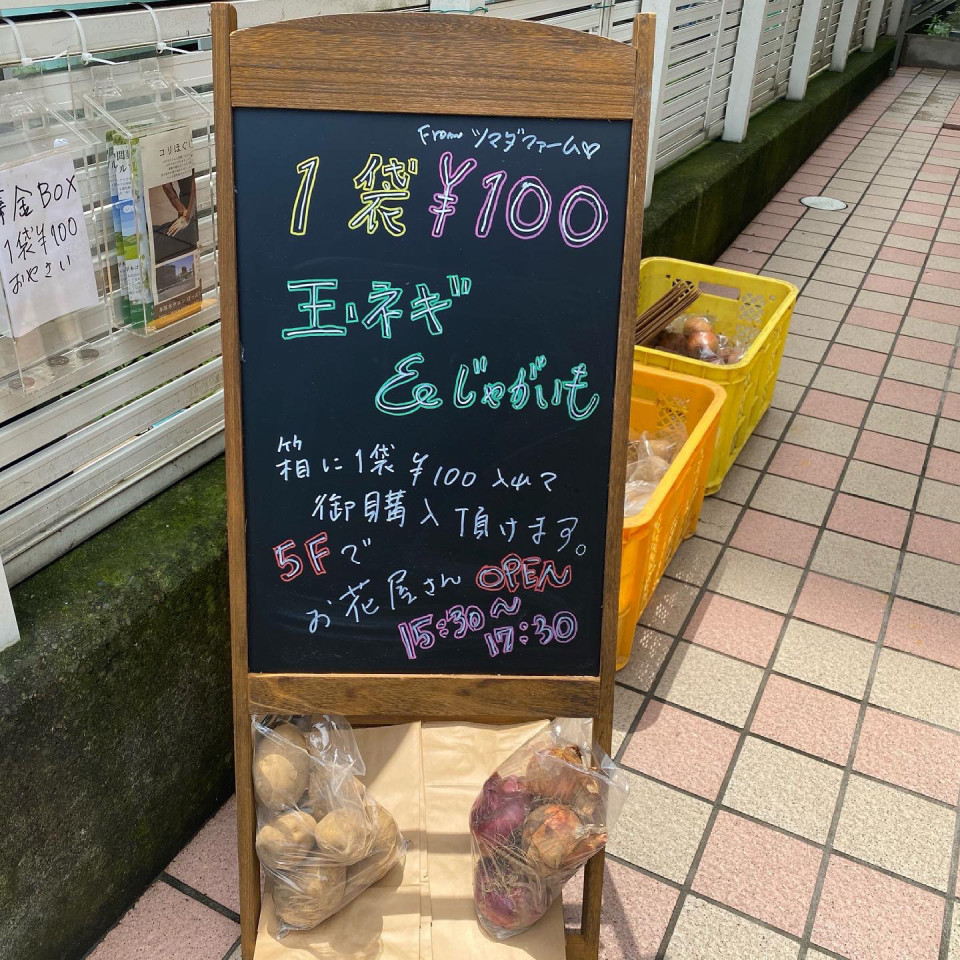 From ツマダファーム♡
1袋¥100
玉ネギ
&じゃがいも
箱に1袋¥100入れて
御購入頂けます。
5Fで
お花屋さんOPEN
15:30〜
17:30
金BOX
1袋¥100
おやさい
コリほぐし